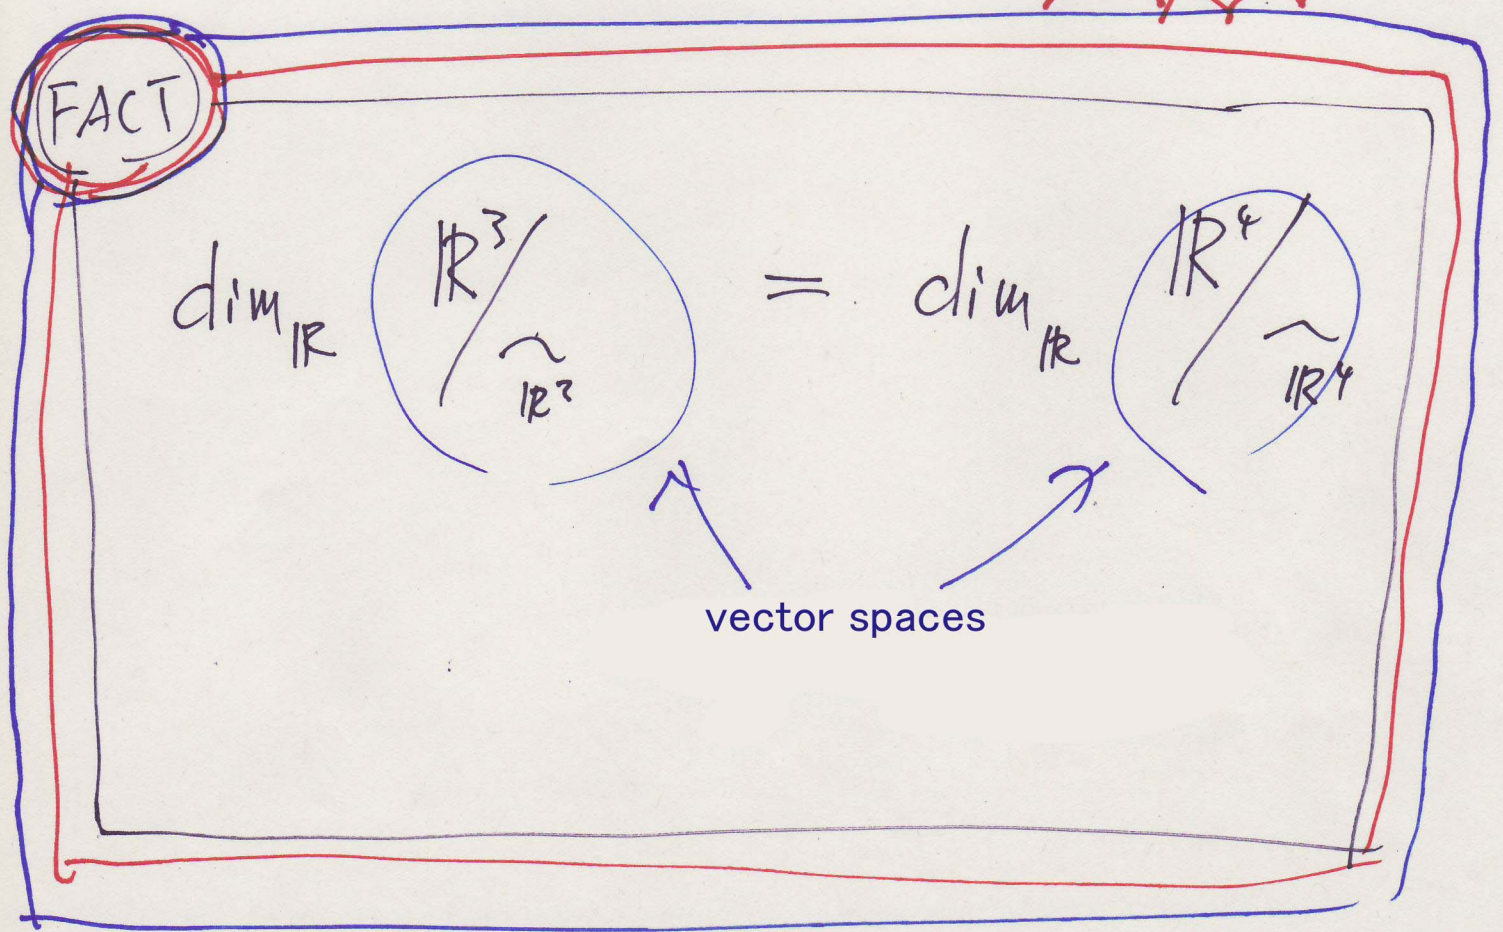 FACT
dim_ℝ ℝ³/~_ℝ³ = dim_ℝ ℝ⁴/~_ℝ⁴
vector spaces